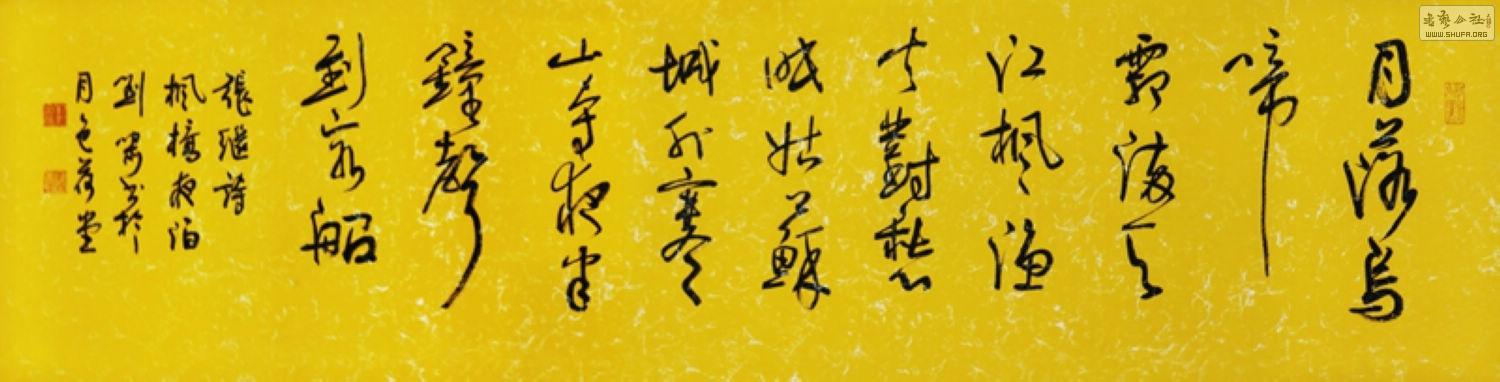 書藝公社
WWW.SHUFA.ORG
月落烏
啼
霜滿天
江楓漁
火對愁
眠姑蘇
城外寒
山寺夜半
鐘聲
到客船
張繼詩
楓橋夜泊
劉書於
月色荷堂